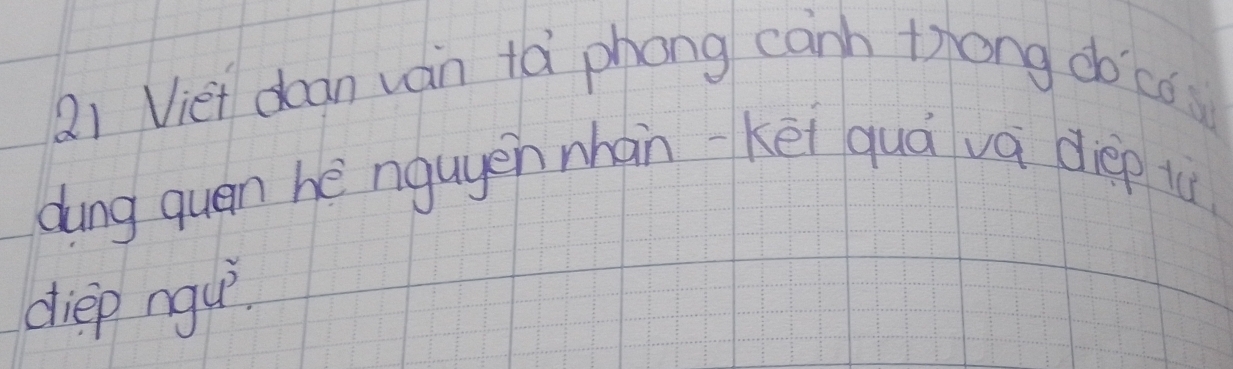 2) Viết đoạn văn tả phong cảnh trong đó có sử
dụng quan hệ nguyên nhân - kết quả và điệp từ
điệp ngữ.